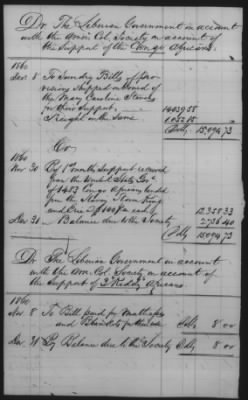 Dr. The Liberian Government in account
with the Am. Col. Society on account of
the Support of the Congo Africans.
1860
Nov 8 To Sundry Bills of pro-
visions shipped on board of
the Mary Caroline Stevens
for their Support 14039.58
" Freight on the same 1055.15
Dolls 15094.73
Cr
1860
Nov 30 By months Support received
from the United States Govt
of Congo Africans landed
from the Storm King
and Erie 12358.33
Dec 31 " Balance due to the Society 2736.40
Dolls 15094.73
Dr. The Liberian Government in account
with the Am. Col. Society on account of
the Support of Africans
1860
Nov 8 To Bill paid for Mattresses
and Blankets for the Dolls 8.00
Dec. 31 By Balance due to the Society Dolls 8.00